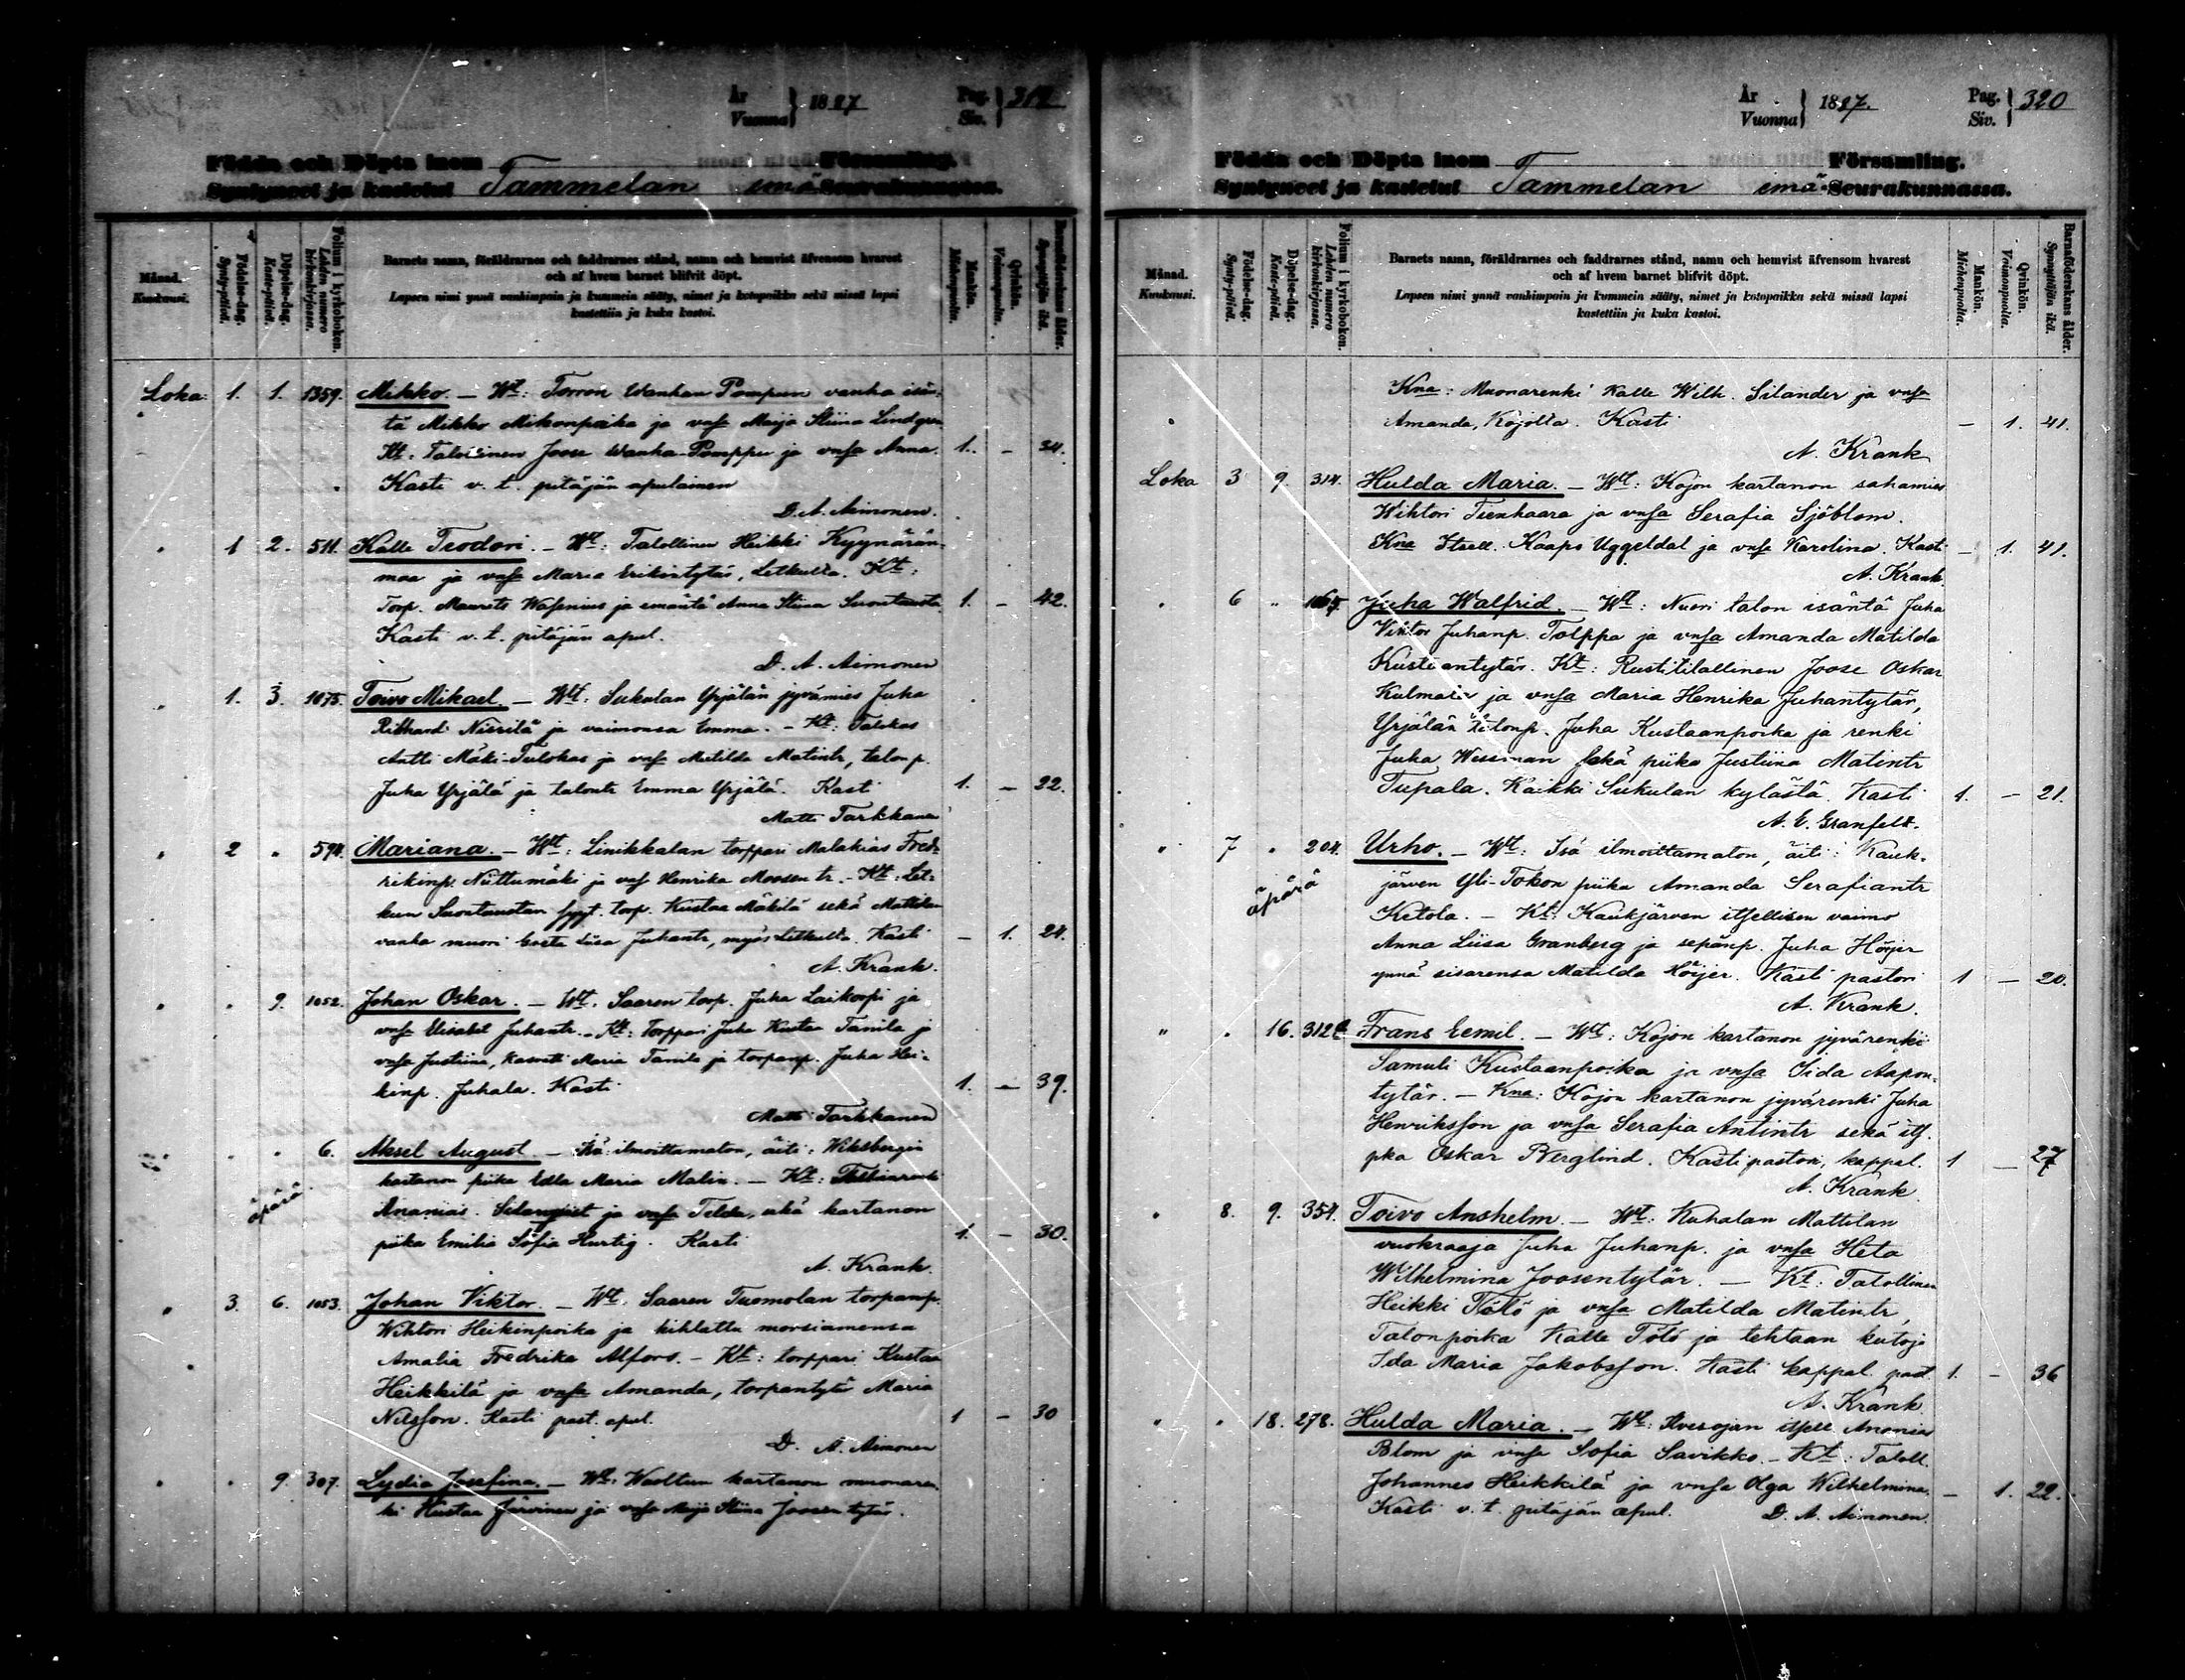 År
Vuonna } 1887
Pag.
Siv. } 319
Födda och Döpta inom Församling.
Syntyneet ja kastetut Tammelan emä Seurakunnassa.
Månad.
Kuukausi.
Födelse-dag.
Synty-päivä.
Döpelse-dag.
Kaste-päivä.
Folium i kyrkoboken.
Lehden numero kirkonkirjassa.
Barnets namn, föräldrarnes och faddrarnes stånd, namn och hemvist äfvensom hvarest
och af hvem barnet blifvit döpt.
Lapsen nimi ynnä vanhimpain ja kummein sääty, nimet ja kotopaikka sekä missä lapsi
kastettiin ja kuka kastoi.
Mankön.
Miehenpuolta.
Qvinkön.
Vaimonpuolta.
Barnaföderskans ålder.
Synnyttäjän ikä.
Loka. 1. 1. 1359. Mikko. – Wt: Torron Wanhan Pompun vanha isän-
tä Mikko Mikonpoika ja vnsa Maija Stiina Lindgren
Kt. Talollinen Joose Wanha-Pomppu ja vnsa Anna. 1. – 34.
Kasti v. t. pitäjän apulainen
D. A. Aimonen.
" 1 2. 511. Kalle Teodori. – Wt: Talollinen Heikki Kyynärän-
maa ja vnsa Maria Erikintytär, Letkulta. Kt:
Torp. Maurits Wasenius ja emäntä Anna Stiina Suontausta 1. – 42.
Kasti v. t. pitäjän apul.
D. A. Aimonen
" 1. 3. 1075. Toivo Mikael. – Wt: Sukulan Yrjälän jyvämies Juha
Rikhard Nierilä ja vaimonsa Emma. – Kt: Talokas
Antti Mäki-Tulokas ja vnsa Matilda Matintr, talonp.
Juha Yrjälä ja talontr Emma Yrjälä. Kasti 1. – 22.
Matti Tarkkanen
" 2 " 594. Mariana. – Wt: Linikkalan torppari Malakias Fred-
rikinp. Nuttumäki ja vnsa Henrika Moosentr. – Kt: Let-
kun Suontaustan torp. Kustaa Mäkilä sekä Mattilan
vanha muori Greta Liisa Juhantr, myös Letkulta. Kasti – 1. 24.
A. Krank.
" " 9. 1052. Johan Oskar. – Wt. Saaren torp. Juha Laikorpi ja
vnsa Elisabet Juhantr. – Kt: Torppari Juha Kustaa Tanila ja
vnsa Justiina, kasvatti Maria Tanila ja torpanp. Juha Hei-
kinp. Juhala. Kasti 1. – 39.
Matti Tarkkanen
" " 6. Aksel August. – Isä: ilmoittamaton, äiti: Wiksbergin
äpärä
kartanon piika Edla Maria Malin. – Kt:
Ananias ja vnsa Tilda, sekä kartanon
piika Emilia Sofia Hurtig. Kasti 1. – 30.
A. Krank.
" 3. 6. 1053. Johan Viktor. – Wt. Saaren Tuomolan torpanp.
Wihtori Heikinpoika ja kihlattu morsiamensa
Amalia Fredrika Alfors. – Kt: torppari Kustaa
Heikkilä ja vnsa Amanda, torpantytär Maria
Nilsson. Kasti past. apul. 1 – 30
D. A. Aimonen
" " 9. 307. Lydia Josefina. – Wt: kartanon muonaren-
ki Kustaa Järvinen ja vnsa Maija Stiina Joosentytär.
År
Vuonna } 1887.
Pag.
Siv. } 320
Födda och Döpta inom Församling.
Syntyneet ja kastetut Tammelan emä Seurakunnassa.
Månad.
Kuukausi.
Födelse-dag.
Synty-päivä.
Döpelse-dag.
Kaste-päivä.
Folium i kyrkoboken.
Lehden numero kirkonkirjassa.
Barnets namn, föräldrarnes och faddrarnes stånd, namn och hemvist äfvensom hvarest
och af hvem barnet blifvit döpt.
Lapsen nimi ynnä vanhimpain ja kummein sääty, nimet ja kotopaikka sekä missä lapsi
kastettiin ja kuka kastoi.
Mankön.
Miehenpuolta.
Qvinkön.
Vaimonpuolta.
Barnaföderskans ålder.
Synnyttäjän ikä.
Kna: Muonarenki Kalle Wilh. Silander ja vnsa
" Amanda, Kojolta. Kasti – 1. 41.
A. Krank
Loka 3 9. 314. Hulda Maria. – Wt: Kojon kartanon sahamies
Wihtori Tienhaara ja vnsa Serafia Sjöblom.
Kna Itsell. Kaapo Uggeldal ja vnsa Karolina. Kasti – 1. 41.
A. Krank.
" 6 " 1067. Juha Walfrid. – Wt: Nuori talon isäntä Juha
Viktor Juhanp. Tolppa ja vnsa Amanda Matilda
Kustaantytär. Kt: Rustitilallinen Joose Oskar
Kulmala ja vnsa Maria Henrika Juhantytär,
Yrjälän talonp. Juha Kustaanpoika ja renki
Juha Wessman sekä piika Justiina Matintr
Tupala. Kaikki Sukulan kylästä. Kasti 1. – 21.
A. E. Granfelt.
" 7 " 204. Urho. – Wt: Isä ilmoittamaton, äiti: Kauk-
äpärä
järven Yli-Tokon piika Amanda Serafiantr
Ketola. – Kt: Kaukjärven itsellisen vaimo
Anna Liisa Granberg ja sepänp. Juha Höijer
ynnä sisarensa Matilda Höijer. Kasti pastori 1 – 20.
A. Krank.
" " 16. 312 Frans Eemil. – Wt: Kojon kartanon jyvärenki
Samuli Kustaanpoika ja vnsa Iida Aapon-
tytär. – Kna: Kojon kartanon jyvärenki Juha
Henriksson ja vnsa Serafia Antintr sekä its.
pka Oskar Berglind. Kasti pastori, kappal. 1 – 27
A. Krank
" 8. 9. 354. Toivo Anshelm. – Wt: Kuhalan Mattilan
vuokraaja Juha Juhanp. ja vnsa Heta
Wilhelmina Joosentytär. – Kt: Talollinen
Heikki Tötö ja vnsa Matilda Matintr,
Talonpoika Kalle Tötö ja tehtaan kutoja
Ida Maria Jakobsson. Kasti kappal. past. 1. – 36
A. Krank
" " 18. 278. Hulda Maria. – Wt: itsell. Anania
Blom ja vnsa Sofia Savikko. – Kt: Taloll.
Johannes Heikkilä ja vnsa Olga Wilhelmina. – 1. 22.
Kasti v. t. pitäjän apul. D. A. Aimonen.